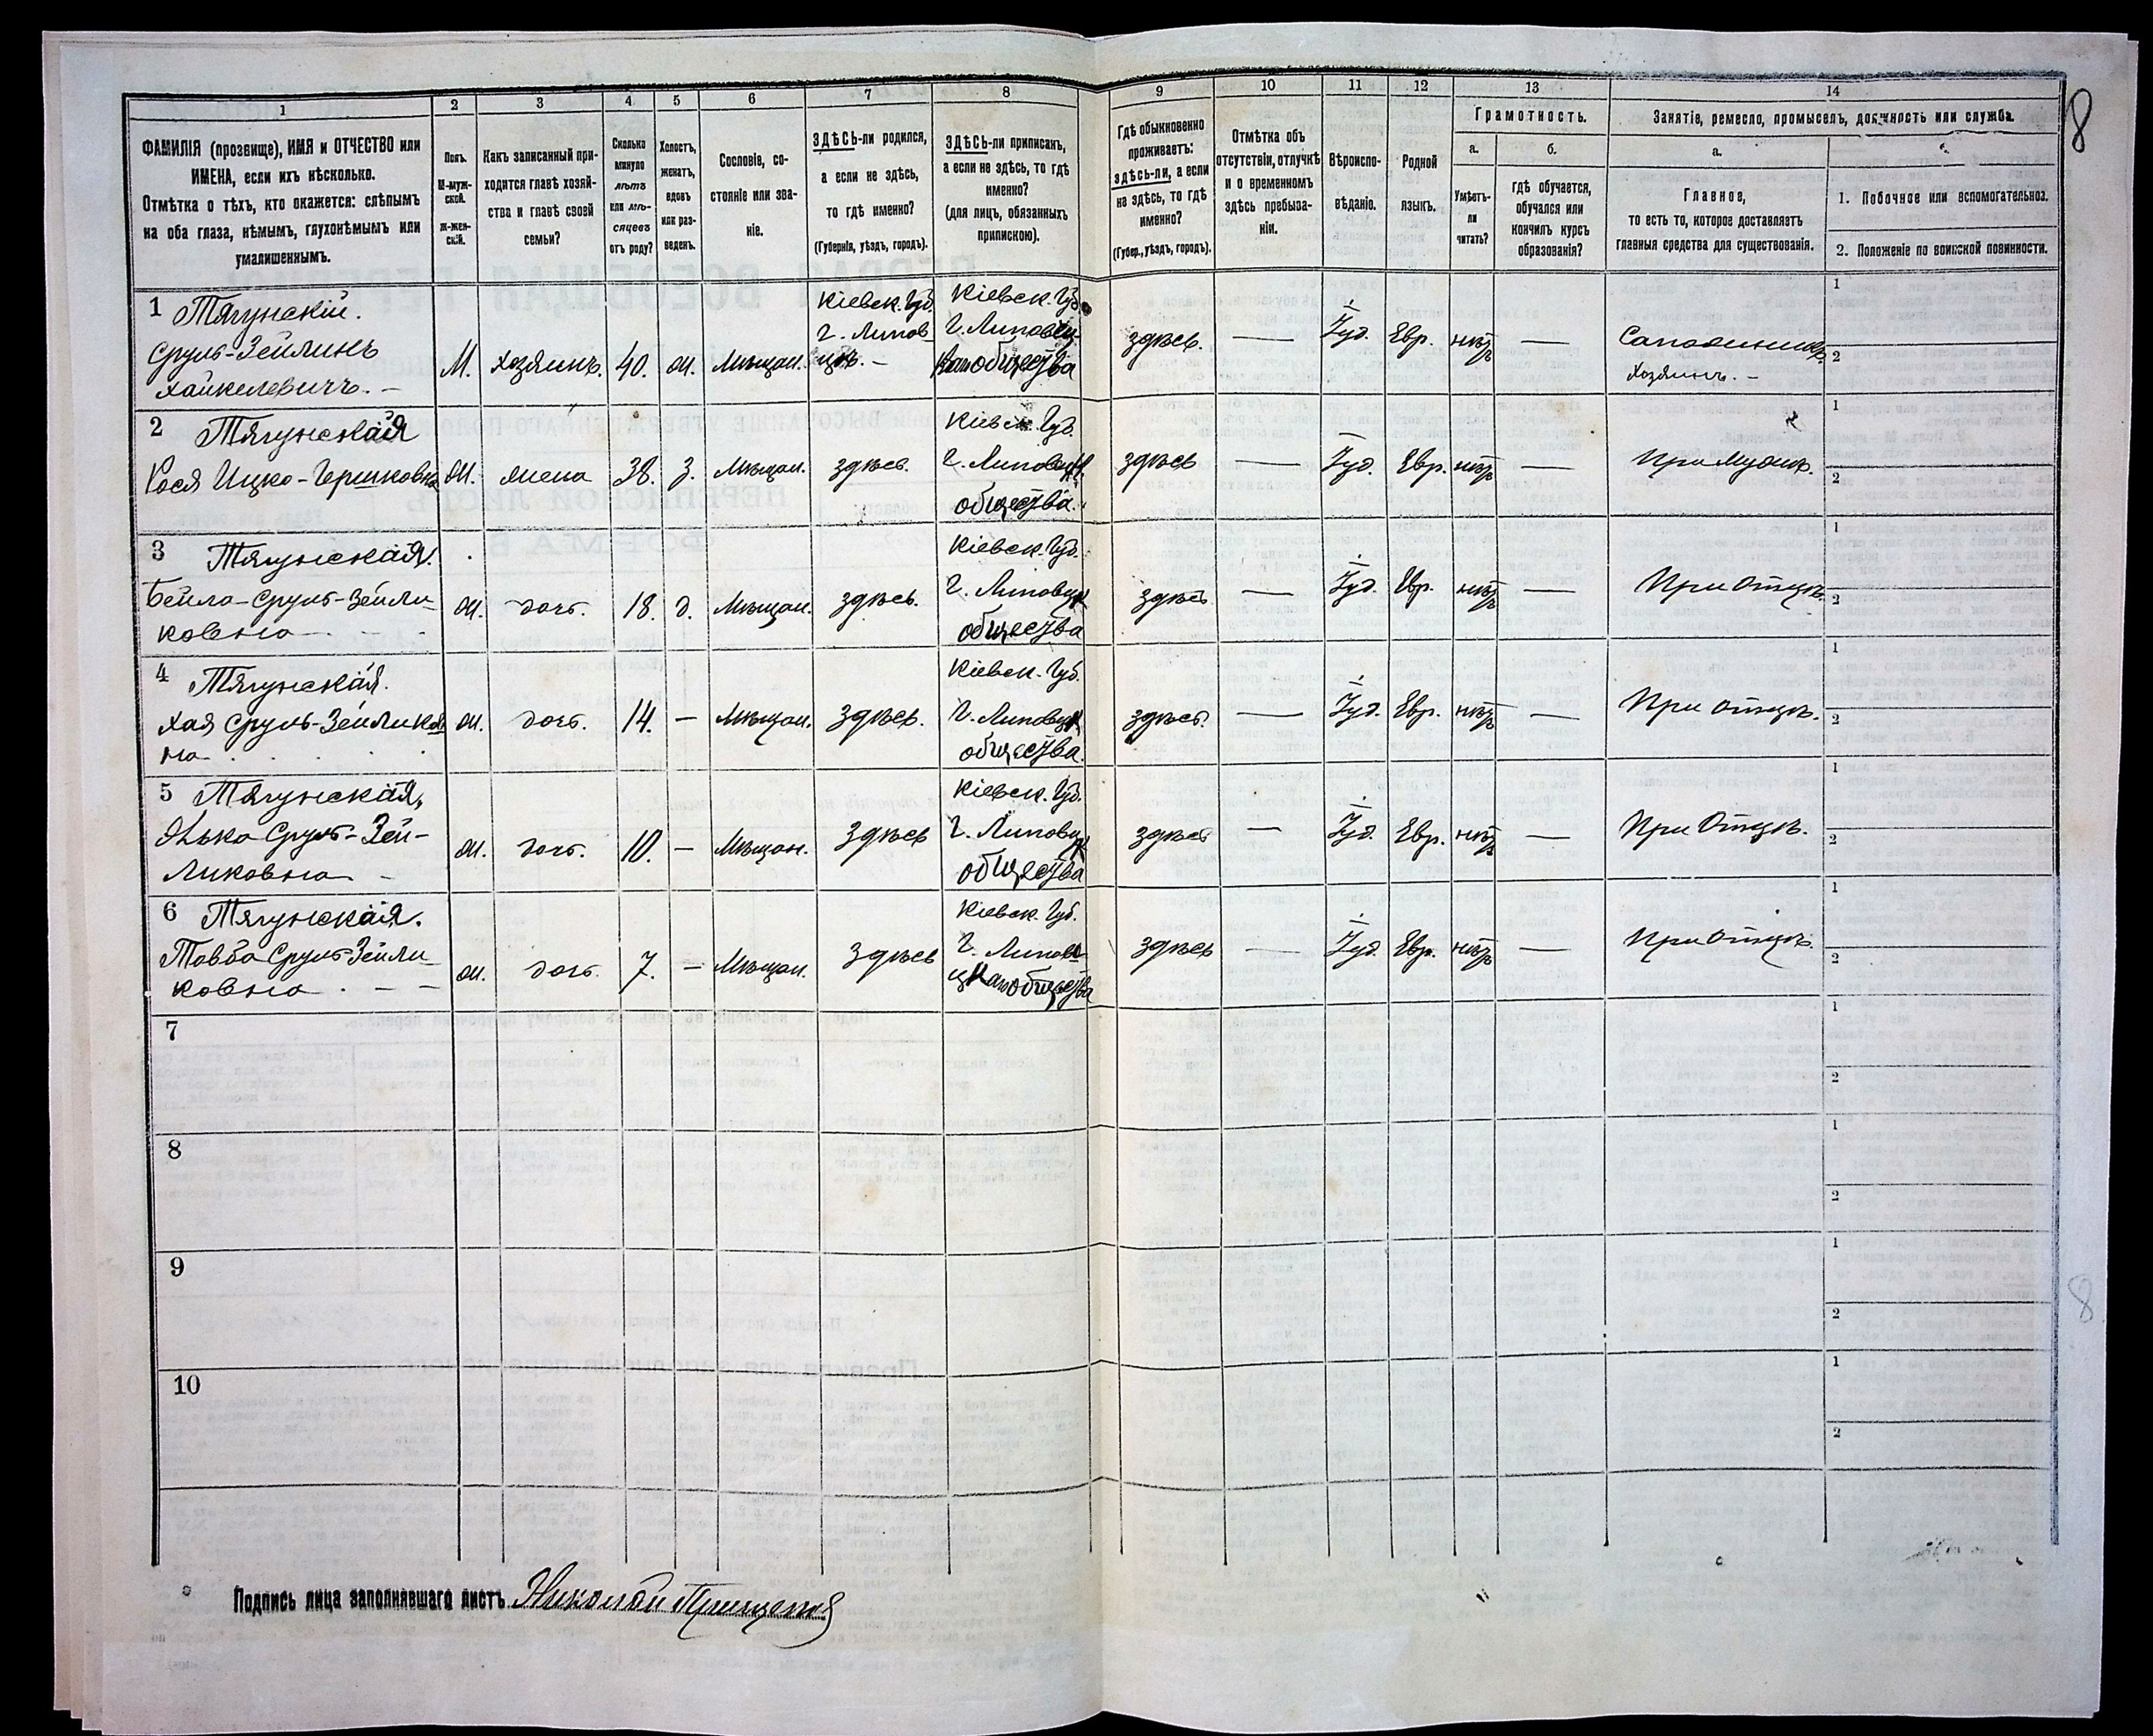 8
1 2 3 4 5 6 7 8 9 10 11 12 13 14
ФАМИЛІЯ (прозвище), ИМЯ и ОТЧЕСТВО или
ИМЕНА, если ихъ нѣсколько.
Отмѣтка о тѣхъ, кто окажется: слѣпымъ
на оба глаза, нѣмымъ, глухонѣмымъ или
умалишеннымъ.
Полъ.
М-муж-
ской.
Ж-жен-
скій.
Какъ записанный при-
ходится главѣ хозяй-
ства и главѣ своей
семьи?
Сколько
минуло
лѣтъ
или мѣ-
сяцевъ
отъ роду?
Холостъ,
женатъ,
вдовъ
или раз-
веденъ.
Сословіе, со-
стояніе или зва-
ніе.
ЗДѢСЬ-ли родился,
а если не здѣсь,
то гдѣ именно?
(Губернія, уѣздъ, городъ).
ЗДѢСЬ-ли приписанъ,
а если не здѣсь, то гдѣ
именно?
(для лицъ, обязанныхъ
припискою).
Гдѣ обыкновенно
проживаетъ:
здѣсь-ли, а если
не здѣсь, то гдѣ
именно?
(Губер., уѣздъ, городъ).
Отмѣтка объ
отсутствіи, отлучкѣ
и о временномъ
здѣсь пребыва-
ніи.
Вѣроиспо-
вѣданіе.
Родной
языкъ.
Грамотность.
а.
Умѣетъ-
ли
читать?
б.
гдѣ обучается,
обучался или
кончилъ курсъ
образованія?
Занятіе, ремесло, промыселъ, должность или служба.
а.
Главное,
то есть то, которое доставляетъ
главныя средства для существованія.
1. Побочное или вспомогательное.
2. Положеніе по воинской повинности.
1 Тягунскій.
Сруль-Зейликъ
Хайкелевичъ. –
М.
хозяинъ.
40.
ж.
Мѣщан.
Кіевск. Губ.
г. Липов-
цѣ. –
Кіевск. Губ.
г. Липовец-
каго общества
здѣсь.
—
Іуд.
Евр.
нѣтъ
—
Сапожникъ
хозяинъ. –
1
2
2 Тягунская
Рося Ицко-Гершковна
ж.
жена
38.
з.
Мѣщан.
здѣсь.
Кіевск. Губ.
г. Липовецк.
общества.
здѣсь
—
Іуд.
Евр.
нѣтъ
—
При Мужѣ.
1
2
3 Тягунская.
Бейла-Сруль-Зейли-
ковна
ж.
дочь.
18.
д.
Мѣщан.
здѣсь.
Кіевск. Губ.
г. Липовецк
общества
здѣсь
—
Іуд.
Евр.
нѣтъ
—
При Отцѣ.
1
2
4 Тягунская.
Хая Сруль-Зейликов
на
ж.
дочь.
14.
—
Мѣщан.
здѣсь.
Кіевск. Губ.
г. Липовецк
общества.
здѣсь.
—
Іуд.
Евр.
нѣтъ
—
При отцѣ.
1
2
5 Тягунская,
Сруль-Зей-
ликовна –
ж.
дочь.
10.
—
Мѣщан.
Здѣсь
Кіевск. Губ.
г. Липовецк
общества
здѣсь
—
Іуд.
Евр.
нѣтъ
—
При Отцѣ.
1
2
6 Тягунская.
Товба Сруль-Зейли-
ковна. – –
ж.
дочь.
7.
—
Мѣщан.
Здѣсь
Кіевск. Губ.
г. Липове-
цкаго общества
здѣсь
—
Іуд.
Евр.
нѣтъ
—
При Отцѣ.
1
2
7
1
2
8
1
2
9
1
2
10
1
2
Подпись лица заполнявшаго листъ Николай
8